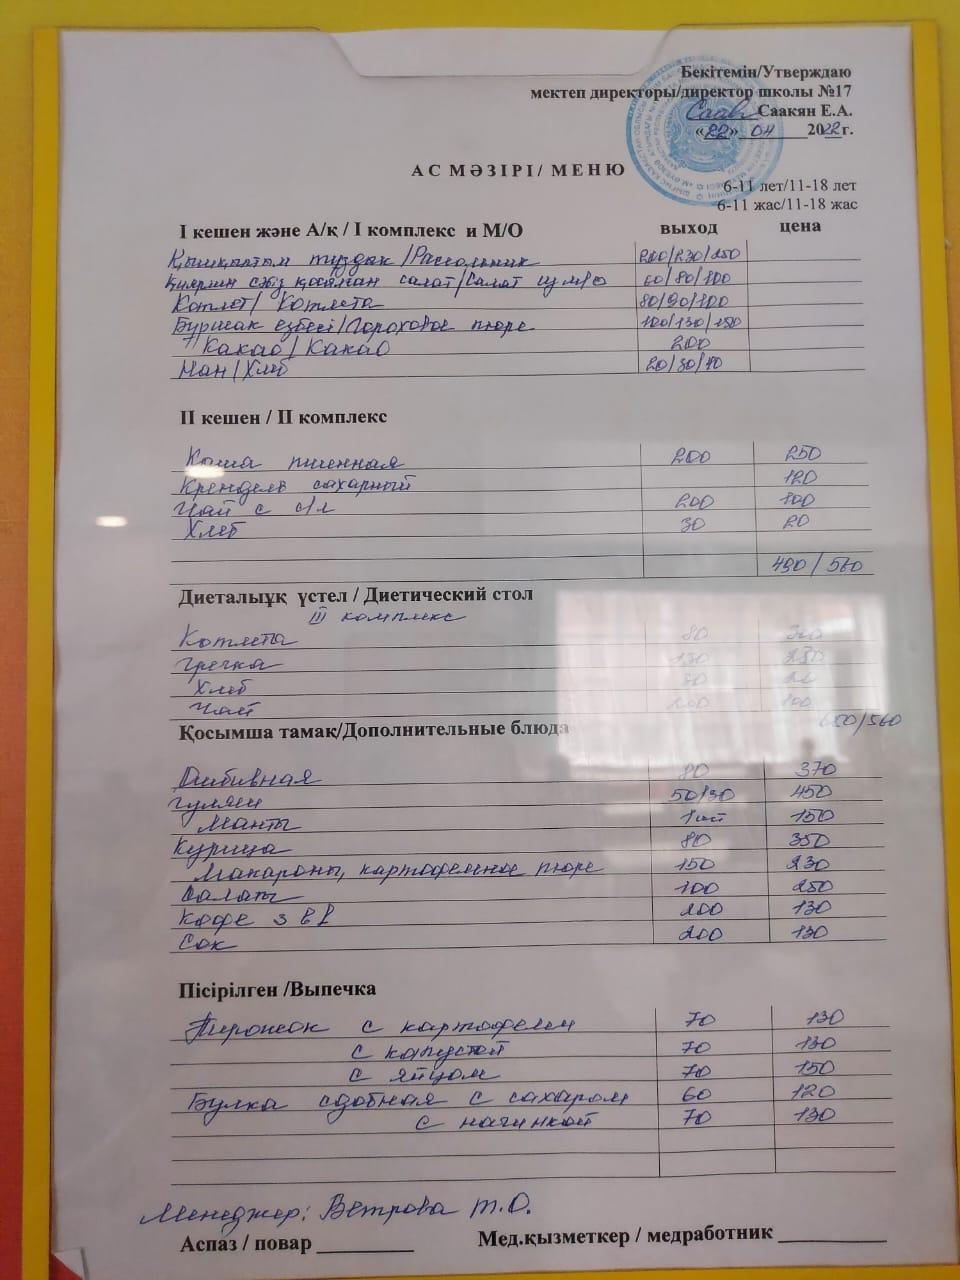 Бекітемін/Утверждаю
мектеп директоры/директор школы №17
Саакян Е.А.
«22» 04 2022 г.
АС МӘЗІРІ/ МЕНЮ
6-11 лет/11-18 лет
6-11 жас/11-18 жас
І кешен және А/қ / I комплекс и М/О выход цена
тұздак /Рассольник 200/230/250
салат/Салат 60/80/100
Котлет/ Котлета 80/90/100
Бұршақ езбесі/Гороховое пюре 100/130/150
Какао/Какао 200
Нан/Хлеб 20/30/40
ІІ кешен / II комплекс
Каша пшенная 200 250
Крендель сахарный 120
Чай с с/л 200 100
Хлеб 30 20
490/560
Диеталыұқ үстел / Диетический стол
III комплекс
Котлета 80
Гречка 130
Хлеб
Чай 200 100
/560
Қосымша тамақ/Дополнительные блюда
Отбивная 80 370
Гуляш 50/30 450
Манты 1 шт 150
Курица 80 350
Макароны, картофельное пюре 150 230
Салаты 100 250
Кофе 3 в 1 200 130
Сок 200 130
Пісірілген /Выпечка
Пирожок с картофелем 70 130
с капустой 70 130
с яйцом 70 150
Булка сдобная с сахаром 60 120
с начинкой 70 130
Менеджер: Ветрова Т.О.
Аспаз / повар Мед.қызметкер / медработник